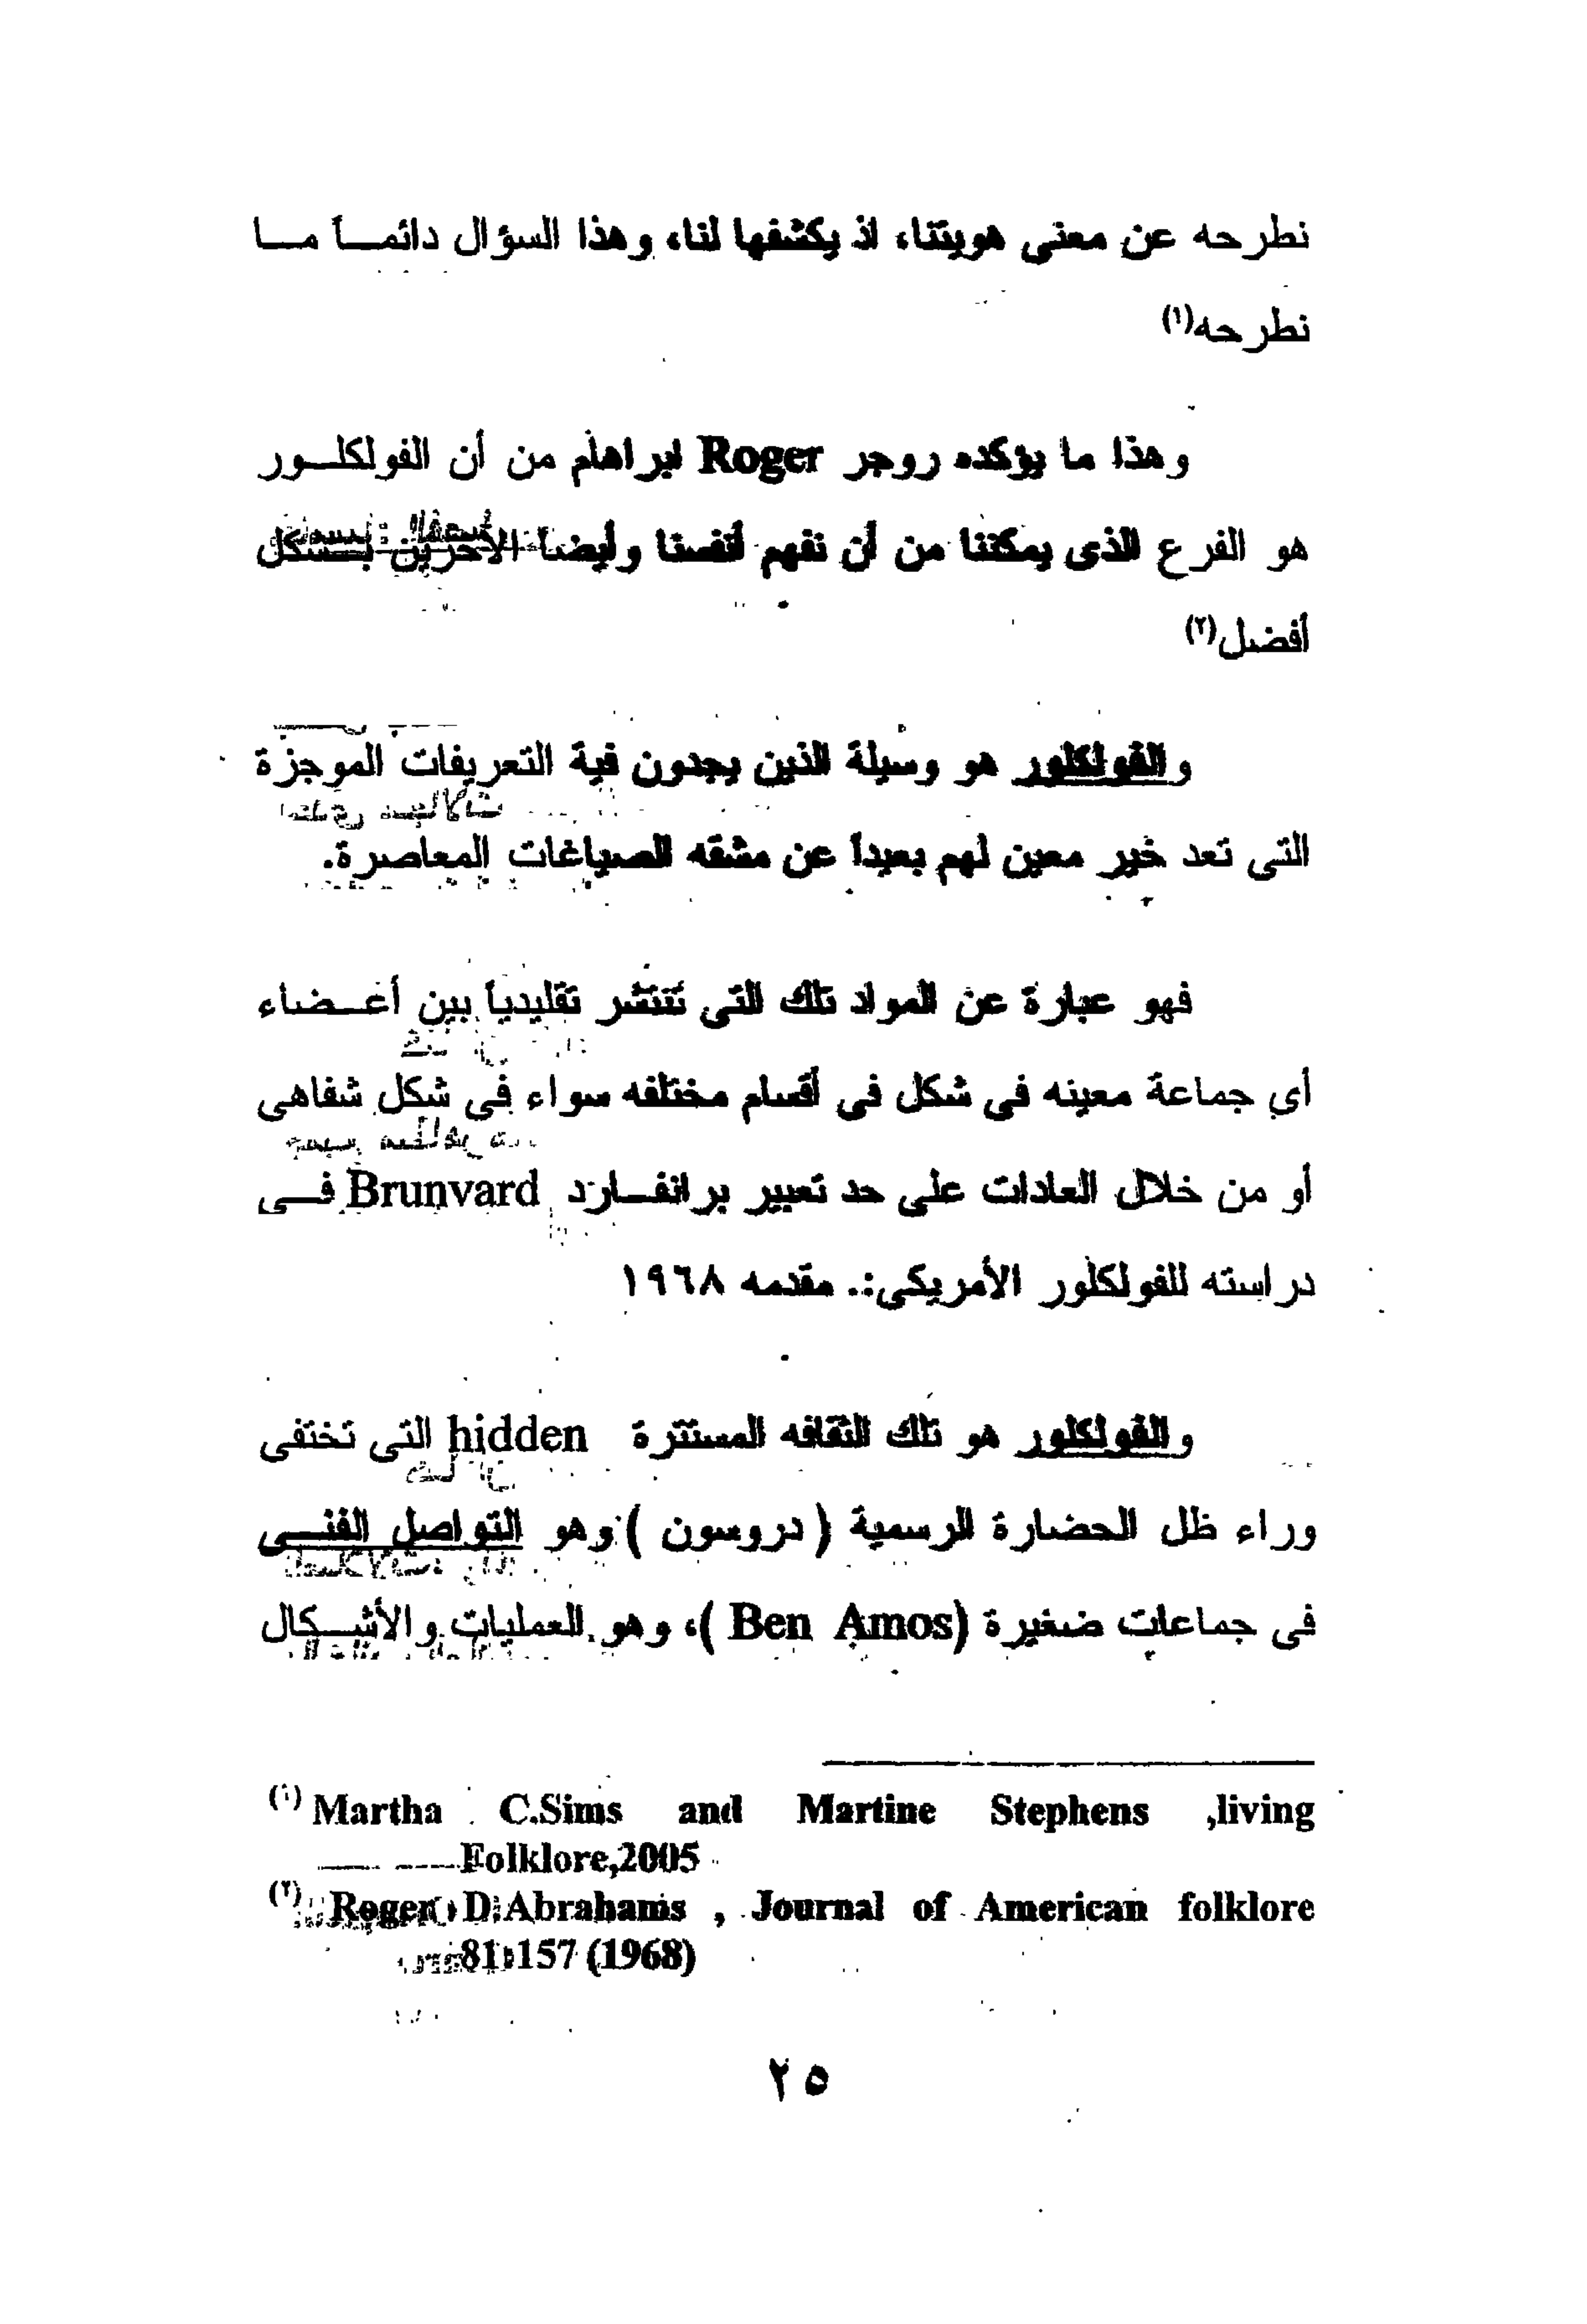 نطرحه عن معنى هويتنا، اذ يكشفها لنا، وهذا السؤال دائماً ما
نطرحه(١)
وهذا ما يؤكده روجر Roger ابراهام من أن الفولكلور
هو الفرع الذى يمكننا من أن نفهم أنفسنا وأيضا الأخرين بشكل
أفضل(٢)
والفولكلور هو وسيلة الذين يجدون فية التعريفات الموجزة
التى تعد خير معين لهم بعيداً عن مشقه الصياغات المعاصرة.
فهو عبارة عن المواد تلك التى تنتشر تقليدياً بين أعضاء
أي جماعة معينه فى شكل فى أقسام مختلفه سواء فى شكل شفاهى
أو من خلال العادات على حد تعبير برانفارد Brunvard فى
دراسته للفولكلور الأمريكى:. مقدمه ١٩٦٨
والفولكلور هو تلك الثقافه المستترة hidden التى تختفى
وراء ظل الحضارة الرسمية ( دروسون ) وهو التواصل الفنى
فى جماعات صغيرة (Ben Amos )، وهو العمليات والأشكال
(١) Martha C.Sims and Martine Stephens ,living
Folklore,2005
(٢) Roger D.Abrahams , Journal of American folklore
81:157 (1968)
٢٥